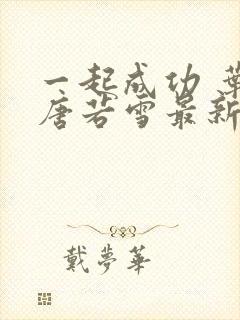 一起成功 葉
唐若雪最新
戴夢華